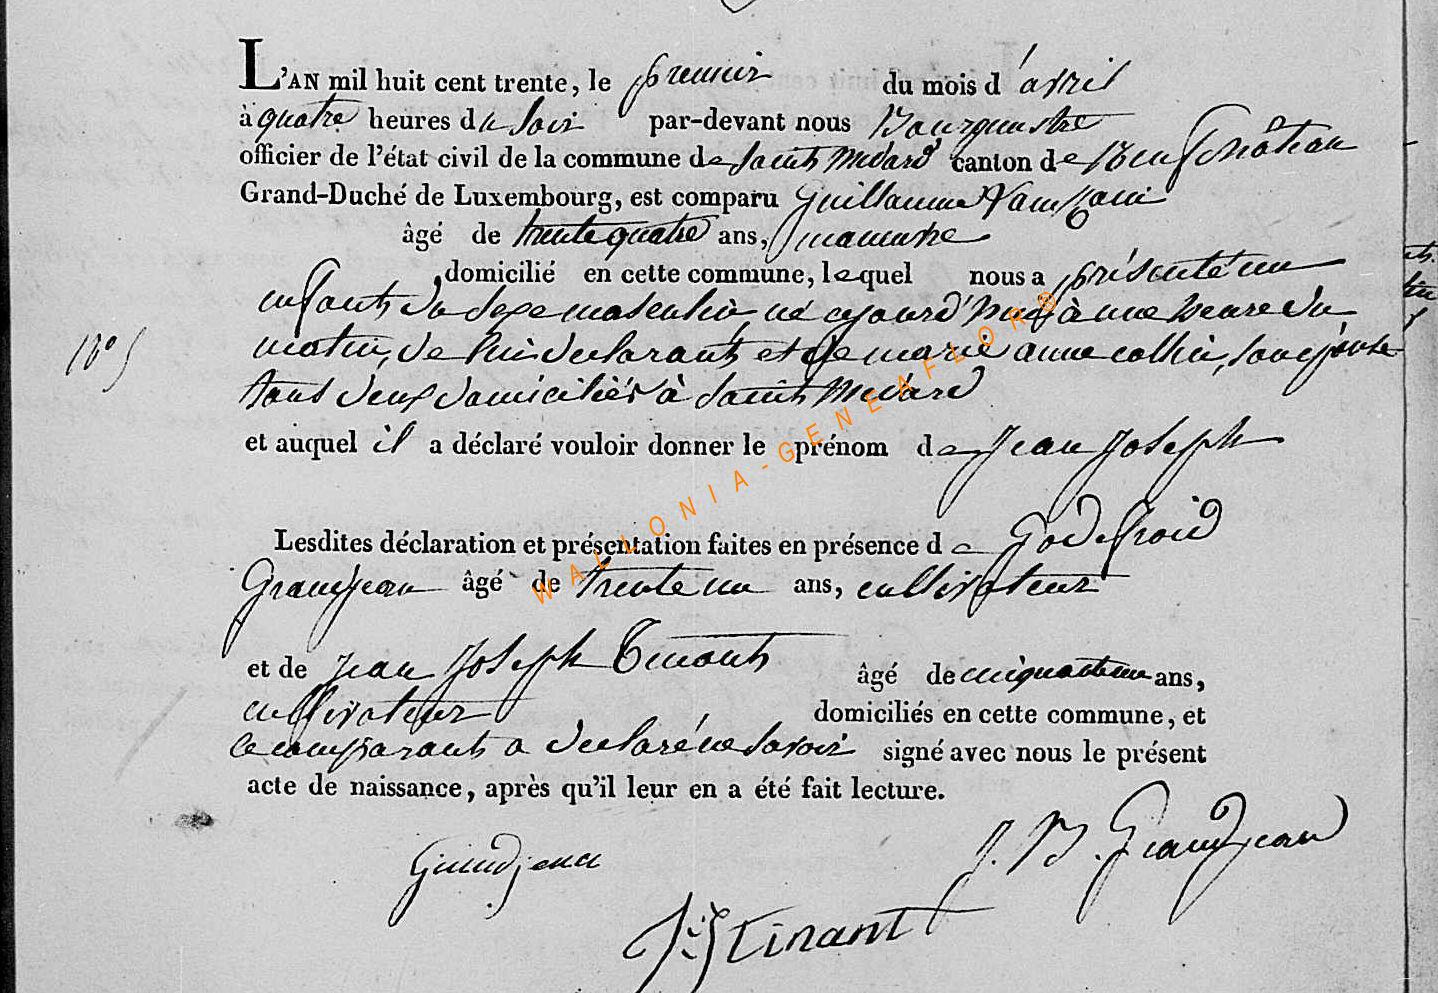 L'AN mil huit cent trente, le premier du mois d'avril
à quatre heures du soir par-devant nous Bourgmestre
officier de l'état civil de la commune de Saint Médard canton de Neufchâteau
Grand-Duché de Luxembourg, est comparu Guillaume
âgé de trente quatre ans, manuvre
, domicilié en cette commune, lequel nous a présenté un
enfant du sexe masculin, né aujourd'hui à une heure du
matin, de lui déclarant et de marie anne collin, son épouse
tous deux domiciliés à Saint Médard
N° 5
et auquel il a déclaré vouloir donner le prénom de Jean Joseph
Lesdites déclaration et présentation faites en présence de Godefroid
Grandjean âgé de trente un ans, cultivateur
et de Jean Joseph Tinant âgé de ans,
cultivateur domiciliés en cette commune, et
le comparant a déclaré ne savoir signé avec nous le présent
acte de naissance, après qu'il leur en a été fait lecture.
Grandjean J. B. Grandjean
J: J Tinant
WALLONIA-GENEAFLOR®